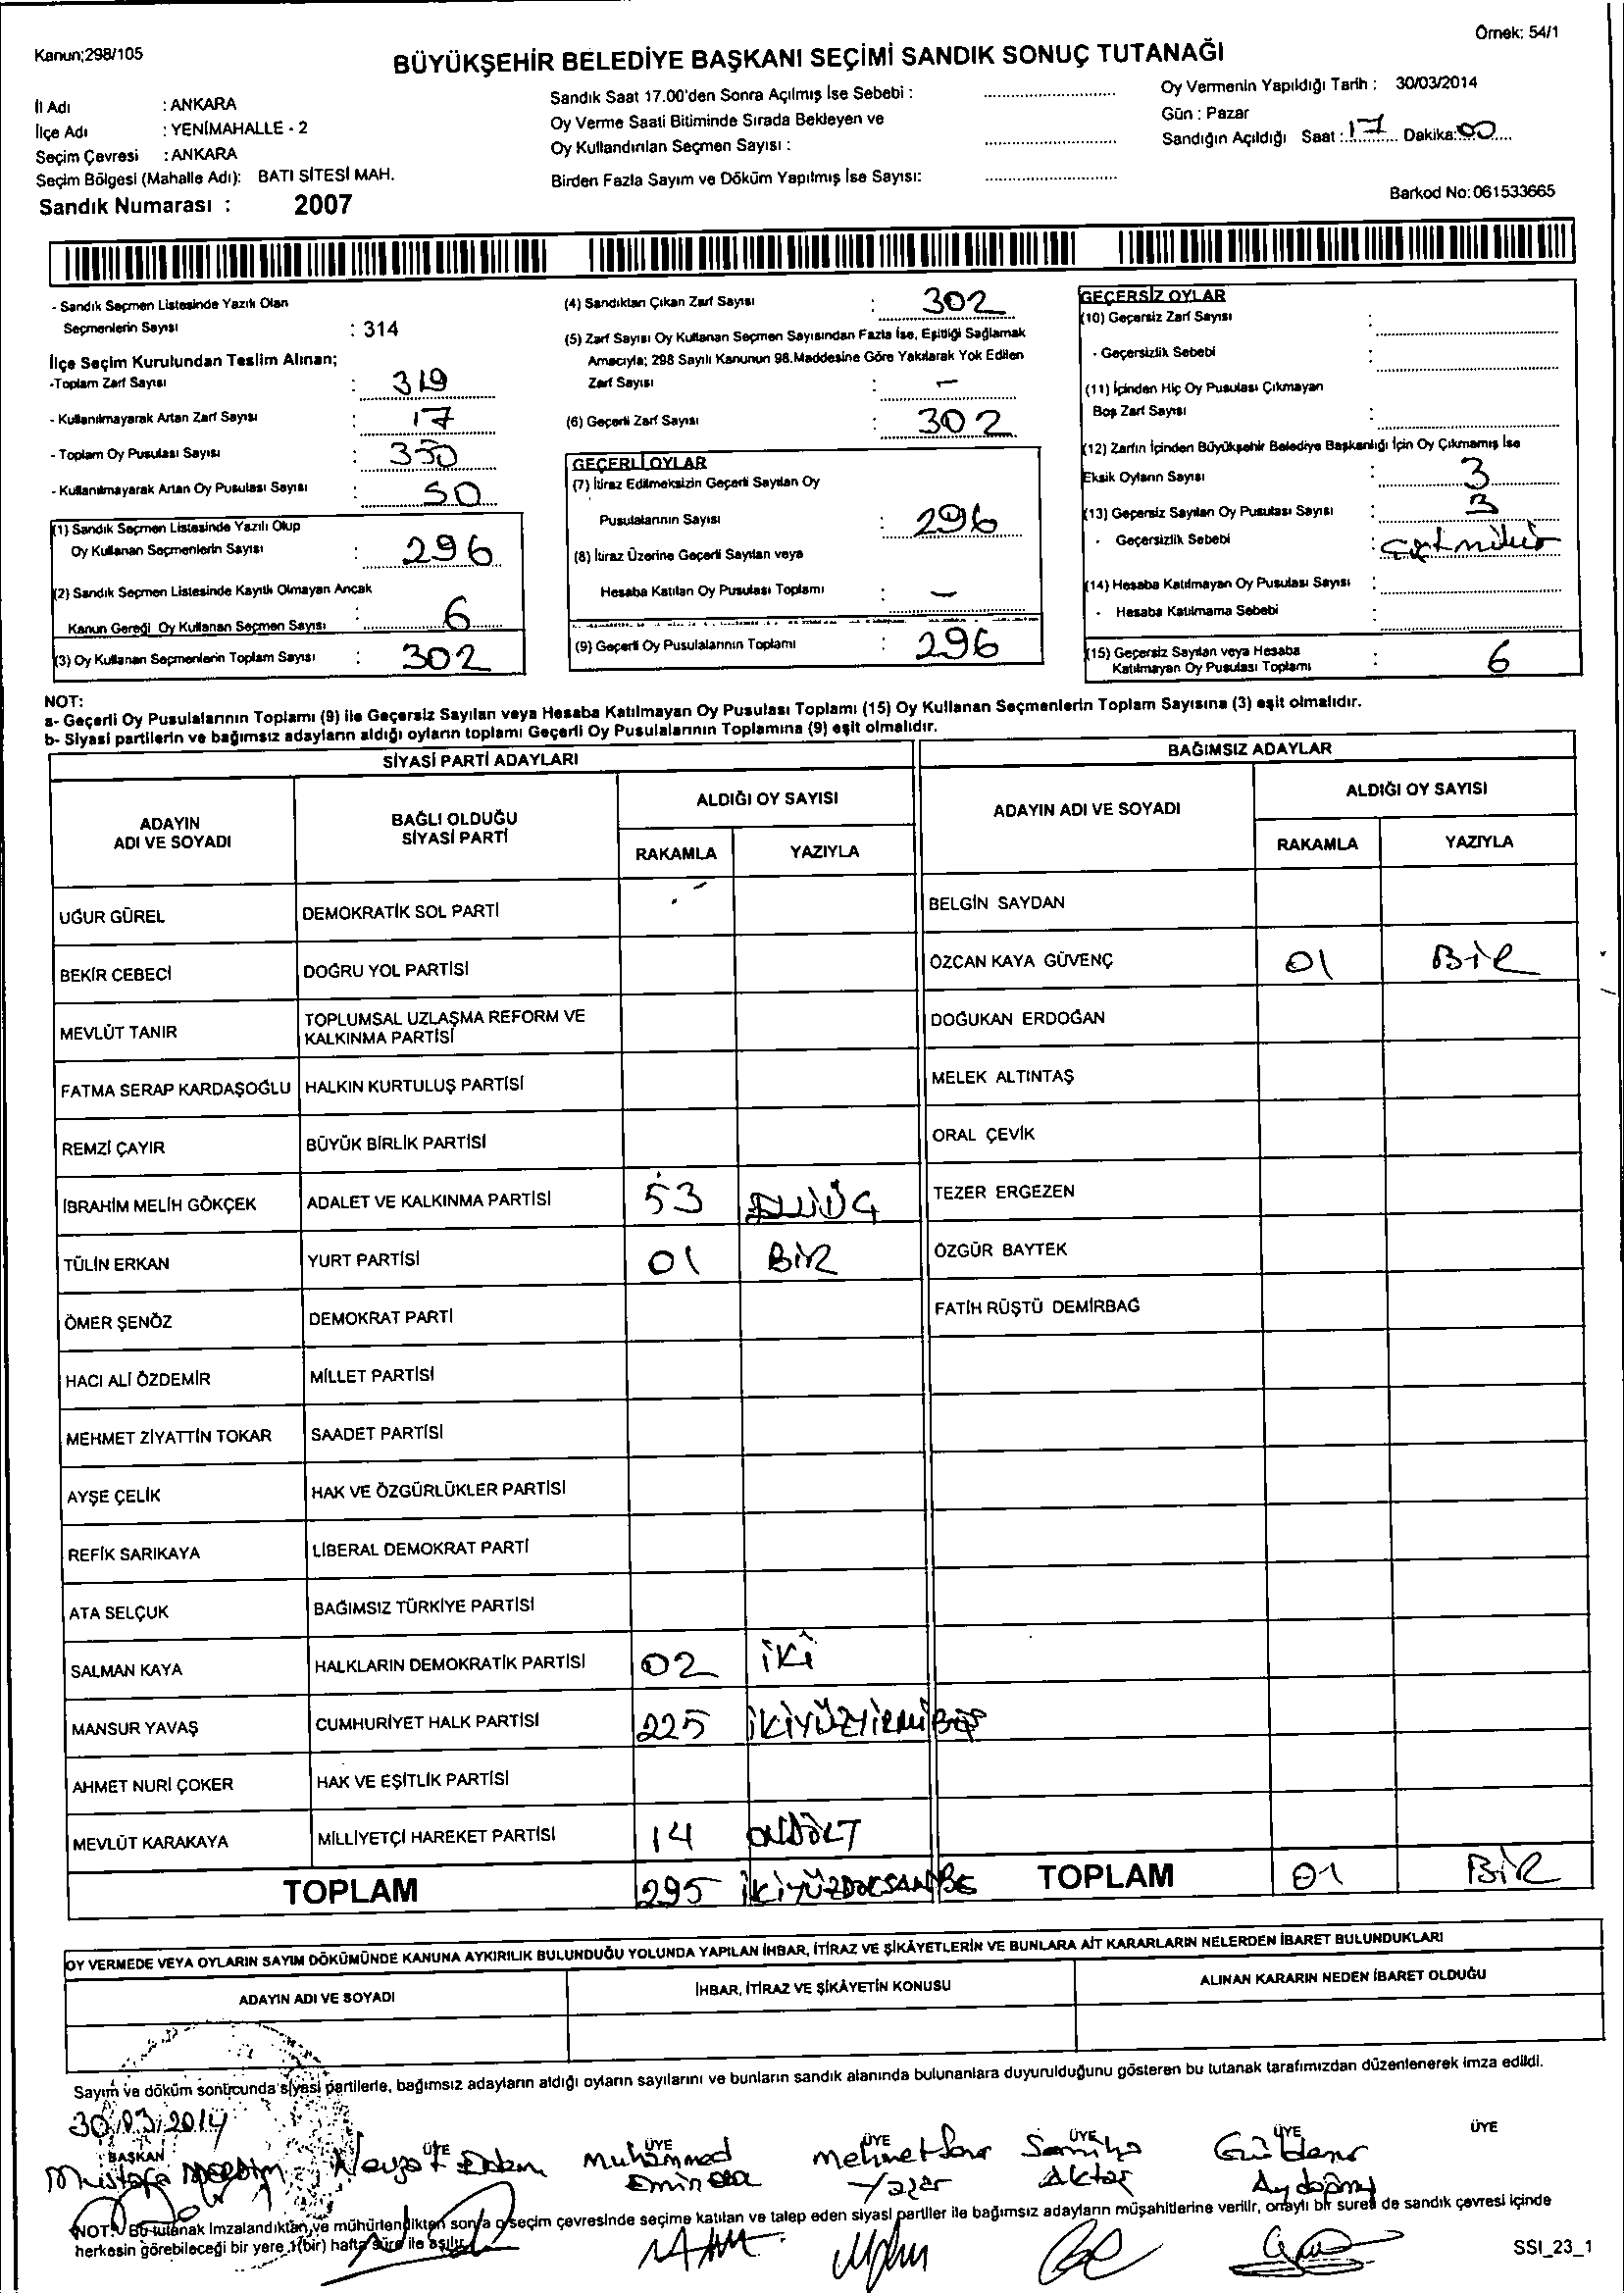 Kanun;298/105
Örnek: 54/1
BÜYÜKŞEHİR BELEDİYE BAŞKANI SEÇİMİ SANDIK SONUÇ TUTANAĞI
İl Adı : ANKARA
İlçe Adı : YENİMAHALLE - 2
Seçim Çevresi : ANKARA
Seçim Bölgesi (Mahalle Adı): BATI SİTESİ MAH.
Sandık Numarası : 2007
Sandık Saat 17.00'den Sonra Açılmış İse Sebebi :
Oy Verme Saati Bitiminde Sırada Bekleyen ve
Oy Kullandırılan Seçmen Sayısı :
Birden Fazla Sayım ve Döküm Yapılmış İse Sayısı:
Oy Vermenin Yapıldığı Tarih : 30/03/2014
Gün : Pazar
Sandığın Açıldığı Saat : 17 Dakika: 00
Barkod No: 061533665
- Sandık Seçmen Listesinde Yazılı Olan
Seçmenlerin Sayısı : 314
İlçe Seçim Kurulundan Teslim Alınan;
-Toplam Zarf Sayısı : 319
- Kullanılmayarak Artan Zarf Sayısı : 17
- Toplam Oy Pusulası Sayısı : 350
- Kullanılmayarak Artan Oy Pusulası Sayısı : 50
(1) Sandık Seçmen Listesinde Yazılı Olup
Oy Kullanan Seçmenlerin Sayısı : 296
(2) Sandık Seçmen Listesinde Kayıtlı Olmayan Ancak
Kanun Gereği Oy Kullanan Seçmen Sayısı : 6
(3) Oy Kullanan Seçmenlerin Toplam Sayısı : 302
(4) Sandıktan Çıkan Zarf Sayısı : 302
(5) Zarf Sayısı Oy Kullanan Seçmen Sayısından Fazla İse, Eşitliği Sağlamak
Amacıyla; 298 Sayılı Kanunun 98.Maddesine Göre Yakılarak Yok Edilen
Zarf Sayısı : -
(6) Geçerli Zarf Sayısı : 302
GEÇERLİ OYLAR
(7) İtiraz Edilmeksizin Geçerli Sayılan Oy
Pusulalarının Sayısı : 296
(8) İtiraz Üzerine Geçerli Sayılan veya
Hesaba Katılan Oy Pusulası Toplamı : -
(9) Geçerli Oy Pusulalarının Toplamı : 296
GEÇERSİZ OYLAR
(10) Geçersiz Zarf Sayısı :
- Geçersizlik Sebebi :
(11) İçinden Hiç Oy Pusulası Çıkmayan
Boş Zarf Sayısı :
(12) Zarfın İçinden Büyükşehir Belediye Başkanlığı İçin Oy Çıkmamış İse
Eksik Oyların Sayısı : 3
(13) Geçersiz Sayılan Oy Pusulası Sayısı : 3
- Geçersizlik Sebebi :
(14) Hesaba Katılmayan Oy Pusulası Sayısı :
- Hesaba Katılmama Sebebi :
(15) Geçersiz Sayılan veya Hesaba
Katılmayan Oy Pusulası Toplamı : 6
NOT:
a- Geçerli Oy Pusulalarının Toplamı (9) ile Geçersiz Sayılan veya Hesaba Katılmayan Oy Pusulası Toplamı (15) Oy Kullanan Seçmenlerin Toplam Sayısına (3) eşit olmalıdır.
b- Siyasi partilerin ve bağımsız adayların aldığı oyların toplamı Geçerli Oy Pusulalarının Toplamına (9) eşit olmalıdır.
SİYASİ PARTİ ADAYLARI
ADAYIN
ADI VE SOYADI
BAĞLI OLDUĞU
SİYASİ PARTİ
ALDIĞI OY SAYISI
RAKAMLA YAZIYLA
UĞUR GÜREL DEMOKRATİK SOL PARTİ
BEKİR CEBECİ DOĞRU YOL PARTİSİ
MEVLÜT TANIR TOPLUMSAL UZLAŞMA REFORM VE
KALKINMA PARTİSİ
FATMA SERAP KARDAŞOĞLU HALKIN KURTULUŞ PARTİSİ
REMZİ ÇAYIR BÜYÜK BİRLİK PARTİSİ
İBRAHİM MELİH GÖKÇEK ADALET VE KALKINMA PARTİSİ 53 ELLİÜÇ
TÜLİN ERKAN YURT PARTİSİ 01 BİR
ÖMER ŞENÖZ DEMOKRAT PARTİ
HACI ALİ ÖZDEMİR MİLLET PARTİSİ
MEHMET ZİYATTİN TOKAR SAADET PARTİSİ
AYŞE ÇELİK HAK VE ÖZGÜRLÜKLER PARTİSİ
REFİK SARIKAYA LİBERAL DEMOKRAT PARTİ
ATA SELÇUK BAĞIMSIZ TÜRKİYE PARTİSİ
SALMAN KAYA HALKLARIN DEMOKRATİK PARTİSİ 02 İKİ
MANSUR YAVAŞ CUMHURİYET HALK PARTİSİ 225 İKİYÜZYİRMİBEŞ
AHMET NURİ ÇOKER HAK VE EŞİTLİK PARTİSİ
MEVLÜT KARAKAYA MİLLİYETÇİ HAREKET PARTİSİ 14 ONDÖRT
TOPLAM 295 İKİYÜZDOKSANBE
BAĞIMSIZ ADAYLAR
ADAYIN ADI VE SOYADI
ALDIĞI OY SAYISI
RAKAMLA YAZIYLA
BELGİN SAYDAN
ÖZCAN KAYA GÜVENÇ 01 BİR
DOĞUKAN ERDOĞAN
MELEK ALTINTAŞ
ORAL ÇEVİK
TEZER ERGEZEN
ÖZGÜR BAYTEK
FATİH RÜŞTÜ DEMİRBAĞ
TOPLAM 01 BİR
OY VERMEDE VEYA OYLARIN SAYIM DÖKÜMÜNDE KANUNA AYKIRILIK BULUNDUĞU YOLUNDA YAPILAN İHBAR, İTİRAZ VE ŞİKÂYETLERİN VE BUNLARA AİT KARARLARIN NELERDEN İBARET BULUNDUKLARI
ADAYIN ADI VE SOYADI
İHBAR, İTİRAZ VE ŞİKÂYETİN KONUSU
ALINAN KARARIN NEDEN İBARET OLDUĞU
Sayım ve döküm sonucunda siyasi partilerle, bağımsız adayların aldığı oyların sayılarını ve bunların sandık alanında bulunanlara duyurulduğunu gösteren bu tutanak tarafımızdan düzenlenerek imza edildi.
30/03/2014
BAŞKAN ÜYE ÜYE ÜYE ÜYE ÜYE ÜYE
Mustafa Nevzat Erdem Muhammed Mehmet Samiha Gülden
Emin Yazar Aktaş Aydoğmuş
NOT: Bu tutanak imzalandıktan ve mühürlendikten sonra o seçim çevresinde seçime katılan ve talep eden siyasi partiler ile bağımsız adayların müşahitlerine verilir, onaylı bir sureti de sandık çevresi içinde
herkesin görebileceği bir yere 1(bir) hafta süre ile asılır.
SSI_23_1